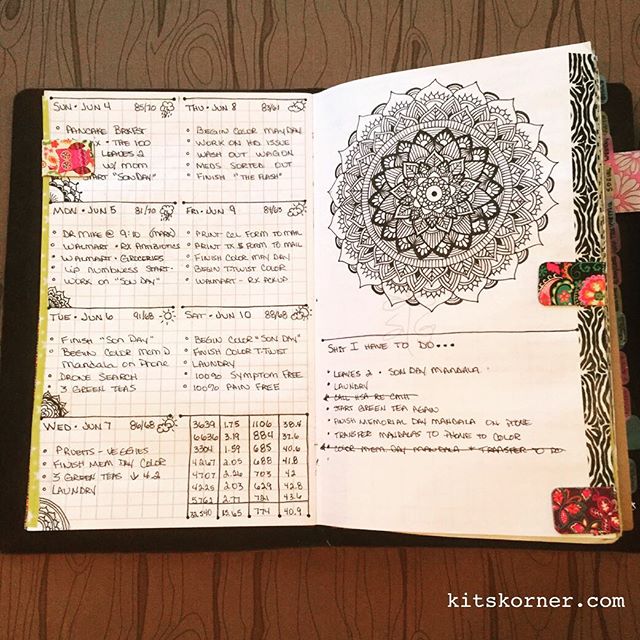 SUN • JUN 4 85/70
PANCAKE BRKFST
• THE 100
LEAVES 2
w/ MOM
START "SON DAY"
THU • JUN 8 83/61
BEGIN COLOR MAY DAY
WORK ON HD ISSUE
WASH OUT WAGON
MEDS SORTED OUT
FINISH "THE FLASH"
MON • JUN 5 81/70
DR MIKE @ 9:10 (MARK)
WALMART • RX ANTIBIOTICS
WALMART • GROCERIES
LIP NUMBNESS START
WORK ON "SON DAY"
FRI • JUN 9 84/63
PRINT CCL FORM TO MAIL
PRINT TX $ FORM TO MAIL
FINISH COLOR MAY DAY
BEGIN T-TWIST COLOR
WALMART • RX PICKUP
TUE • JUN 6 91/68
FINISH "SON DAY"
BEGIN COLOR MEM D
MANDALA ON PHONE
DRONE SEARCH
3 GREEN TEAS
SAT • JUN 10 88/68
BEGIN COLOR "SON DAY"
FINISH COLOR T-TWIST
LAUNDRY
100% SYMPTOM FREE
100% PAIN FREE
WED • JUN 7 86/68
FRUITS • VEGGIES
FINISH MEM DAY COLOR
3 GREEN TEAS ↓ 4.2
LAUNDRY
3639 1.75 1106 38.4
6636 3.19 884 32.6
3304 1.59 685 40.6
4267 2.05 688 41.8
4707 2.26 703 42
4225 2.03 629 42.8
5762 2.77 721 43.6
32,540 15.65 774 40.9
SHIT I HAVE TO DO...
LEAVES 2 • SON DAY MANDALA
LAUNDRY
CALL HSA RE CATH
START GREEN TEA AGAIN
FINISH MEMORIAL DAY MANDALA ON PHONE
TRANSFER MANDALAS TO PHONE TO COLOR
COLOR MEM DAY MANDALA * TRANSFER TO DO
kitskorner.com